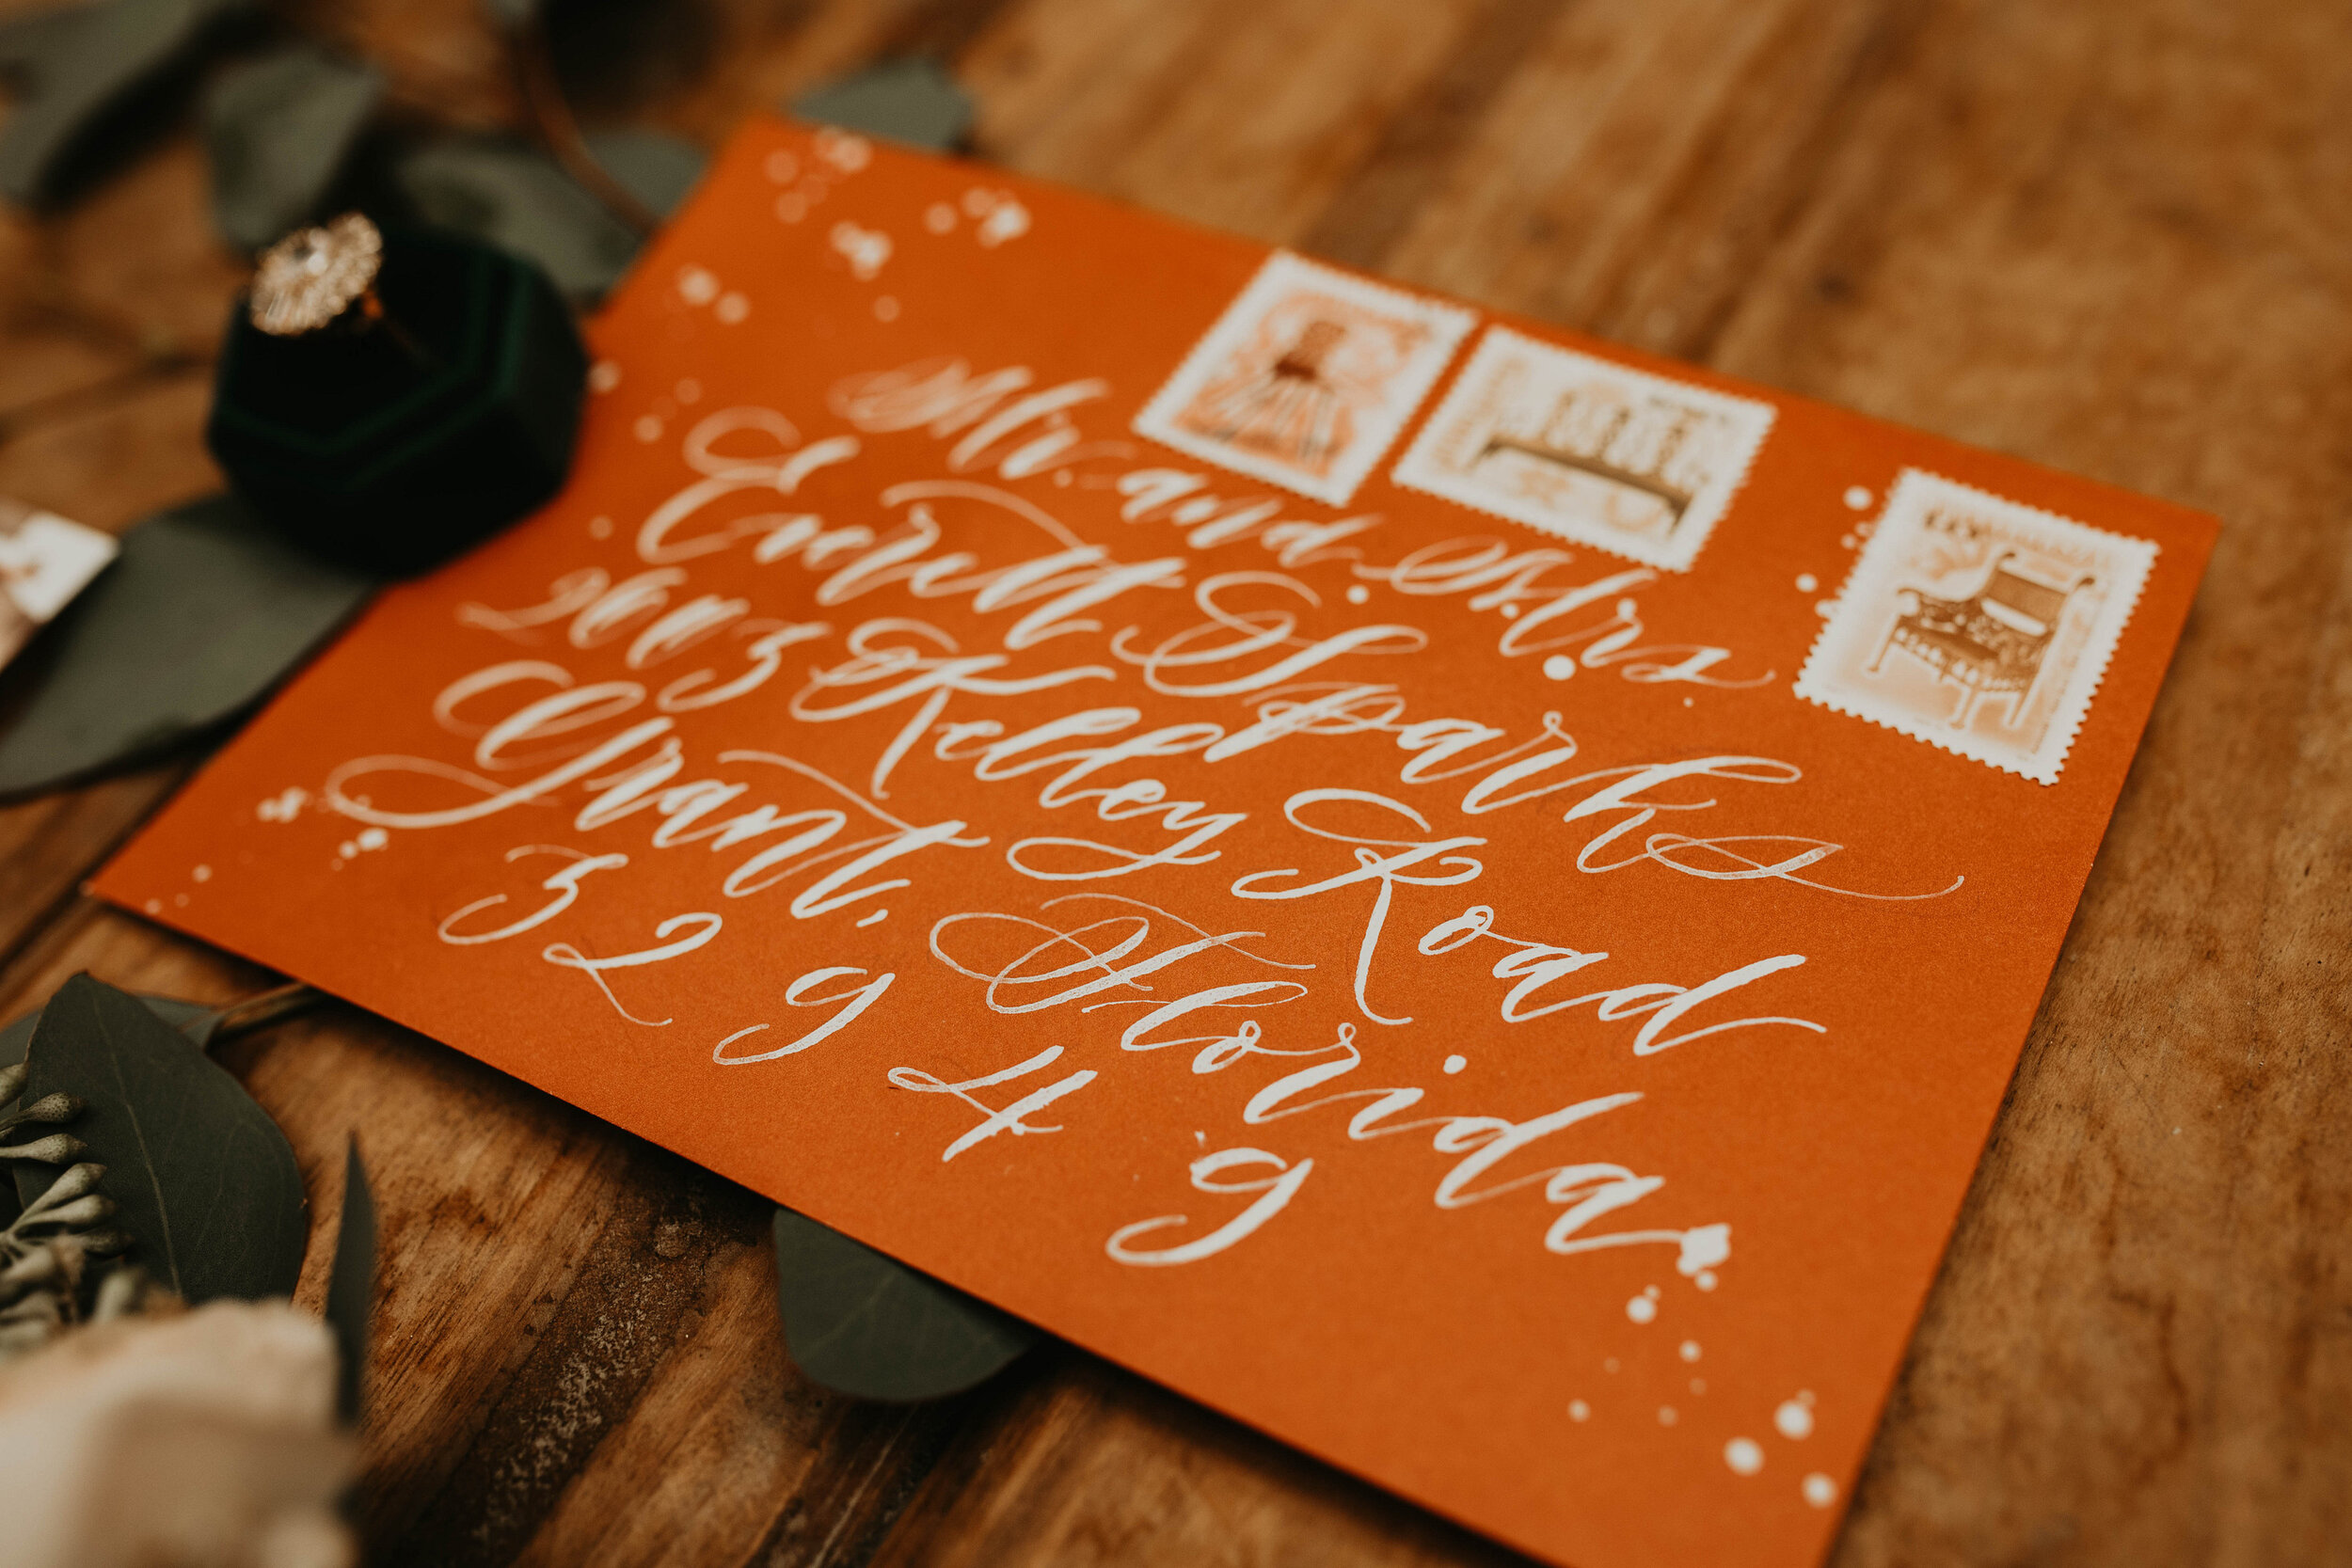 Mr. and Mrs.
Everett Sparks
2003 Kelley Road
Grant, Florida
32949